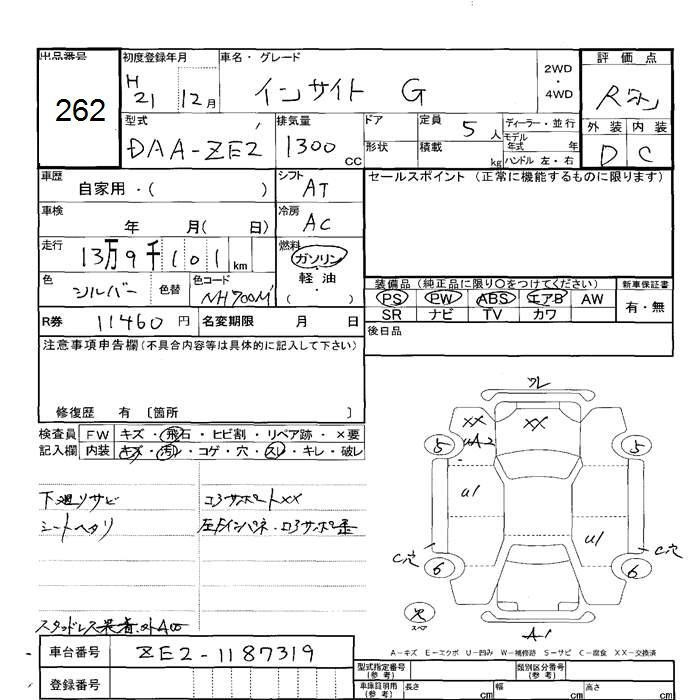 出品番号 初度登録年月 車名・グレード 評価点
262
H 21 12月
インサイト G
2WD・4WD
型式 排気量 ドア 定員 5人 ディーラー・並行
DAA-ZE2 1300cc 形状 積載 kg モデル年式 年
ハンドル 左・右
外装 内装
D C
車歴 自家用・( ) シフト AT セールスポイント (正常に機能するものに限ります)
車検 年 月( 日) 冷房 AC
走行 13万9千101km 燃料 ガソリン・軽油・( )
色 シルバー 色替 色コード NH700M
装備品 (純正品に限り○をつけてください) 新車保証書
PS PW ABS エアB AW 有・無
SR ナビ TV カワ
R券 11460円 名変期限 月 日
後日品
注意事項申告欄(不具合内容等は具体的に記入して下さい)
修復歴 有 〔箇所 〕
検査員記入欄 FW キズ・飛石・ヒビ割・リペア跡・×要
内装 キズ・汚レ・コゲ・穴・スレ・キレ・破レ
下廻リサビ コアサポートXX
シートヘタリ
ワレ
XX XX
UA2
5 5
U1
U1
C穴 6 6 C穴
スペア
A1
A-キズ E-エクボ U-凹み W-補修跡 S-サビ C-腐食 XX-交換済
車台番号 ZE2-1187319
登録番号
型式指定番号(参考) 類別区分番号(参考)
車庫証明用(参考) 長さ cm 幅 cm 高さ cm